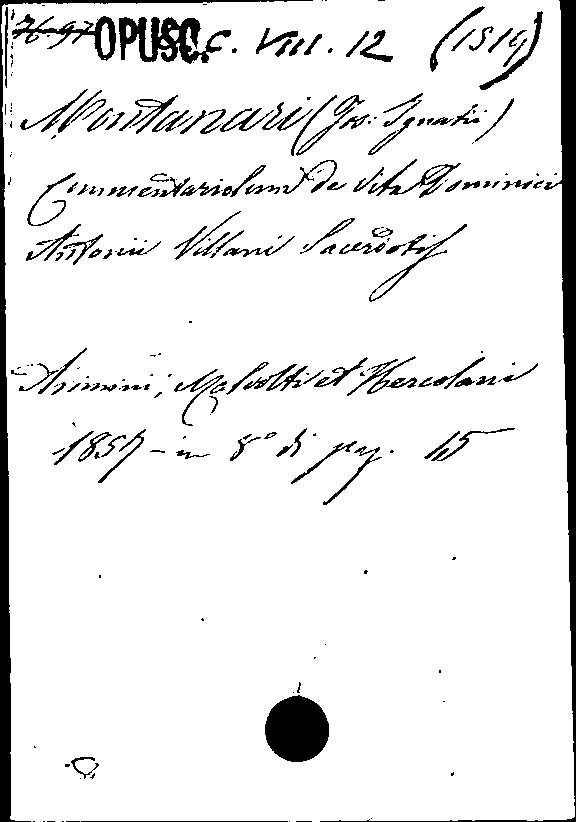 76-97 OPUSC. C. VIII. 12 (1519)
Montanari (Jos: Ignatii)
Commentariolum de Vita Dominici
Antonii Villani Sacerdotis
Arimini; Malvolti et Hercolani
1857 - in 8° di pag. 15